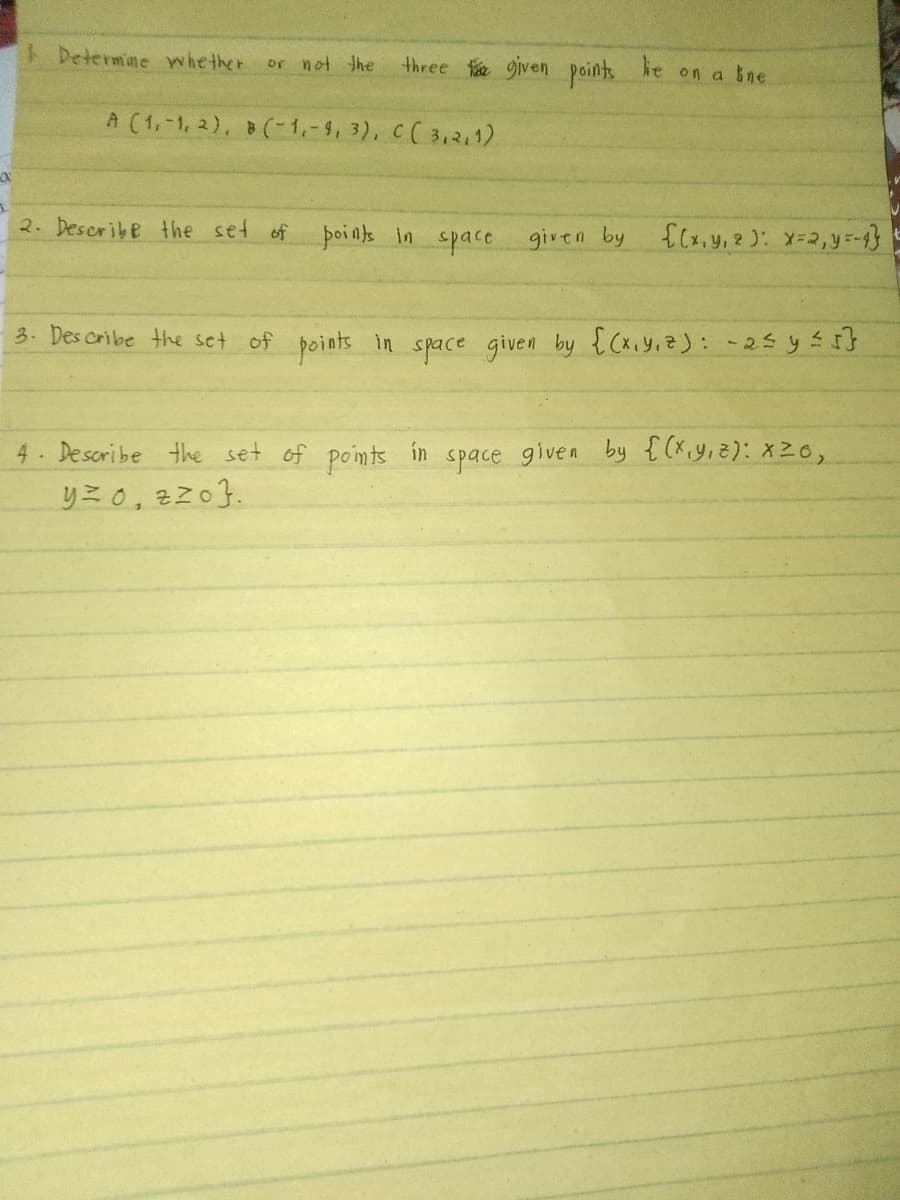 1. Determine whether or not the three given points lie on a line
A (1,-1, 2), B (-1,-4, 3), C ( 3,2,1)
2. Describe the set of points in space given by {(x,y,z): x=2,y=-4}
3. Describe the set of points in space given by {(x,y,z): -2≤ y ≤ 5}
4. Describe the set of points in space given by {(x,y,z): x≥0,
y≥0, z≥0}.